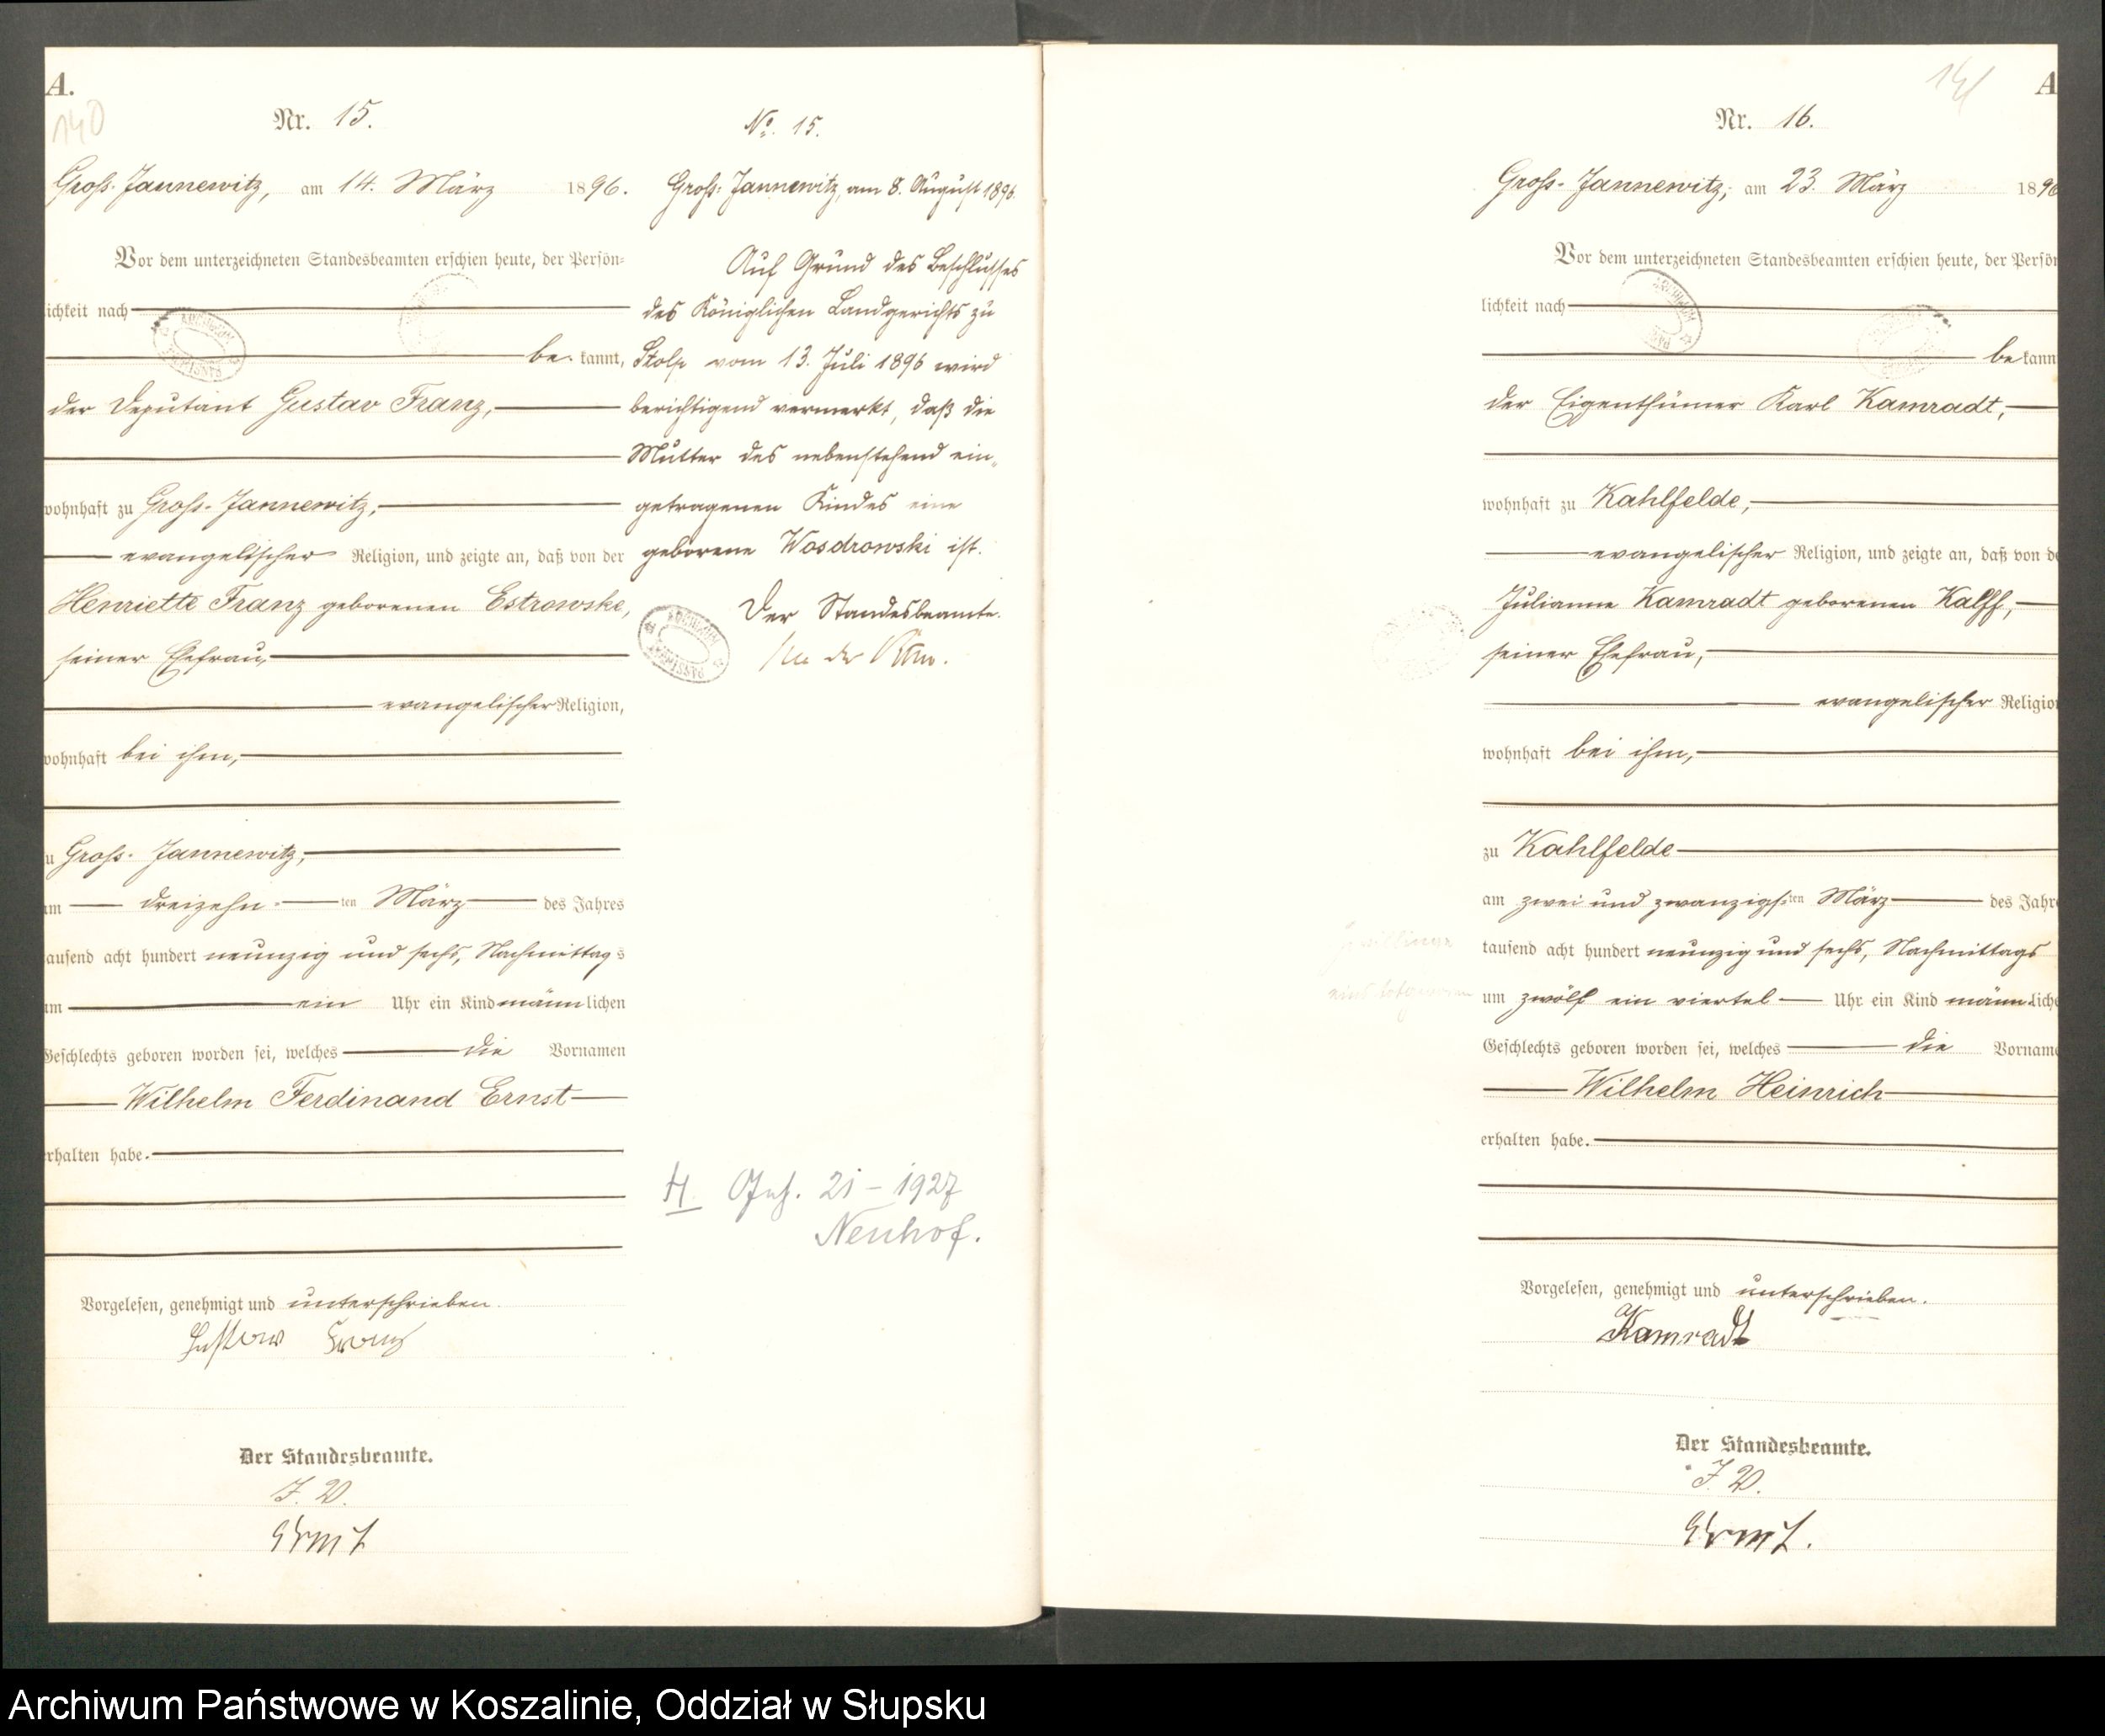 A.
140
Nr. 15.
Gross-Jannewitz, am 14. März 1896.
Vor dem unterzeichneten Standesbeamten erschien heute, der Persön-
lichkeit nach
be kannt,
der Deputant Gustav Franz,
wohnhaft zu Gross-Jannewitz,
evangelischer Religion, und zeigte an, daß von der
Henriette Franz geborenen Estrowske,
seiner Ehefrau,
evangelischer Religion,
wohnhaft bei ihm,
zu Gross-Jannewitz,
am dreizehn ten März des Jahres
tausend acht hundert neunzig und sechs, Nachmittags
um ein Uhr ein Kind männlichen
Geschlechts geboren worden sei, welches die Vornamen
Wilhelm Ferdinand Ernst
erhalten habe.
Vorgelesen, genehmigt und unterschrieben.
Gustav Franz
Der Standesbeamte.
J. V.
No. 15.
Gross-Jannewitz, am 8. August 1896.
Auf Grund des Beschlusses
des Königlichen Landgerichts zu
Stolp vom 13. Juli 1896 wird
berichtigend vermerkt, daß die
Mutter des nebenstehend ein-
getragenen Kindes eine
geborene Wosdrowski ist.
Der Standesbeamte.
H. 21 - 1927
Neuhof.
141
A
Nr. 16.
Gross-Jannewitz, am 23. März 1896
Vor dem unterzeichneten Standesbeamten erschien heute, der Persön
lichkeit nach
be kann
der Eigenthümer Karl Kamradt,
wohnhaft zu Kahlfelde,
evangelischer Religion, und zeigte an, daß von de
Julianne Kamradt geborenen Kalff,
seiner Ehefrau,
evangelischer Religion
wohnhaft bei ihm,
zu Kahlfelde
am zwei und zwanzigs ten März des Jahre
tausend acht hundert neunzig und sechs, Nachmittags
um zwölf ein viertel Uhr ein Kind männ liche
Geschlechts geboren worden sei, welches die Vorname
Wilhelm Heinrich
erhalten habe.
Vorgelesen, genehmigt und unterschrieben.
Kamradt
Der Standesbeamte.
J. V.
Archiwum Państwowe w Koszalinie, Oddział w Słupsku